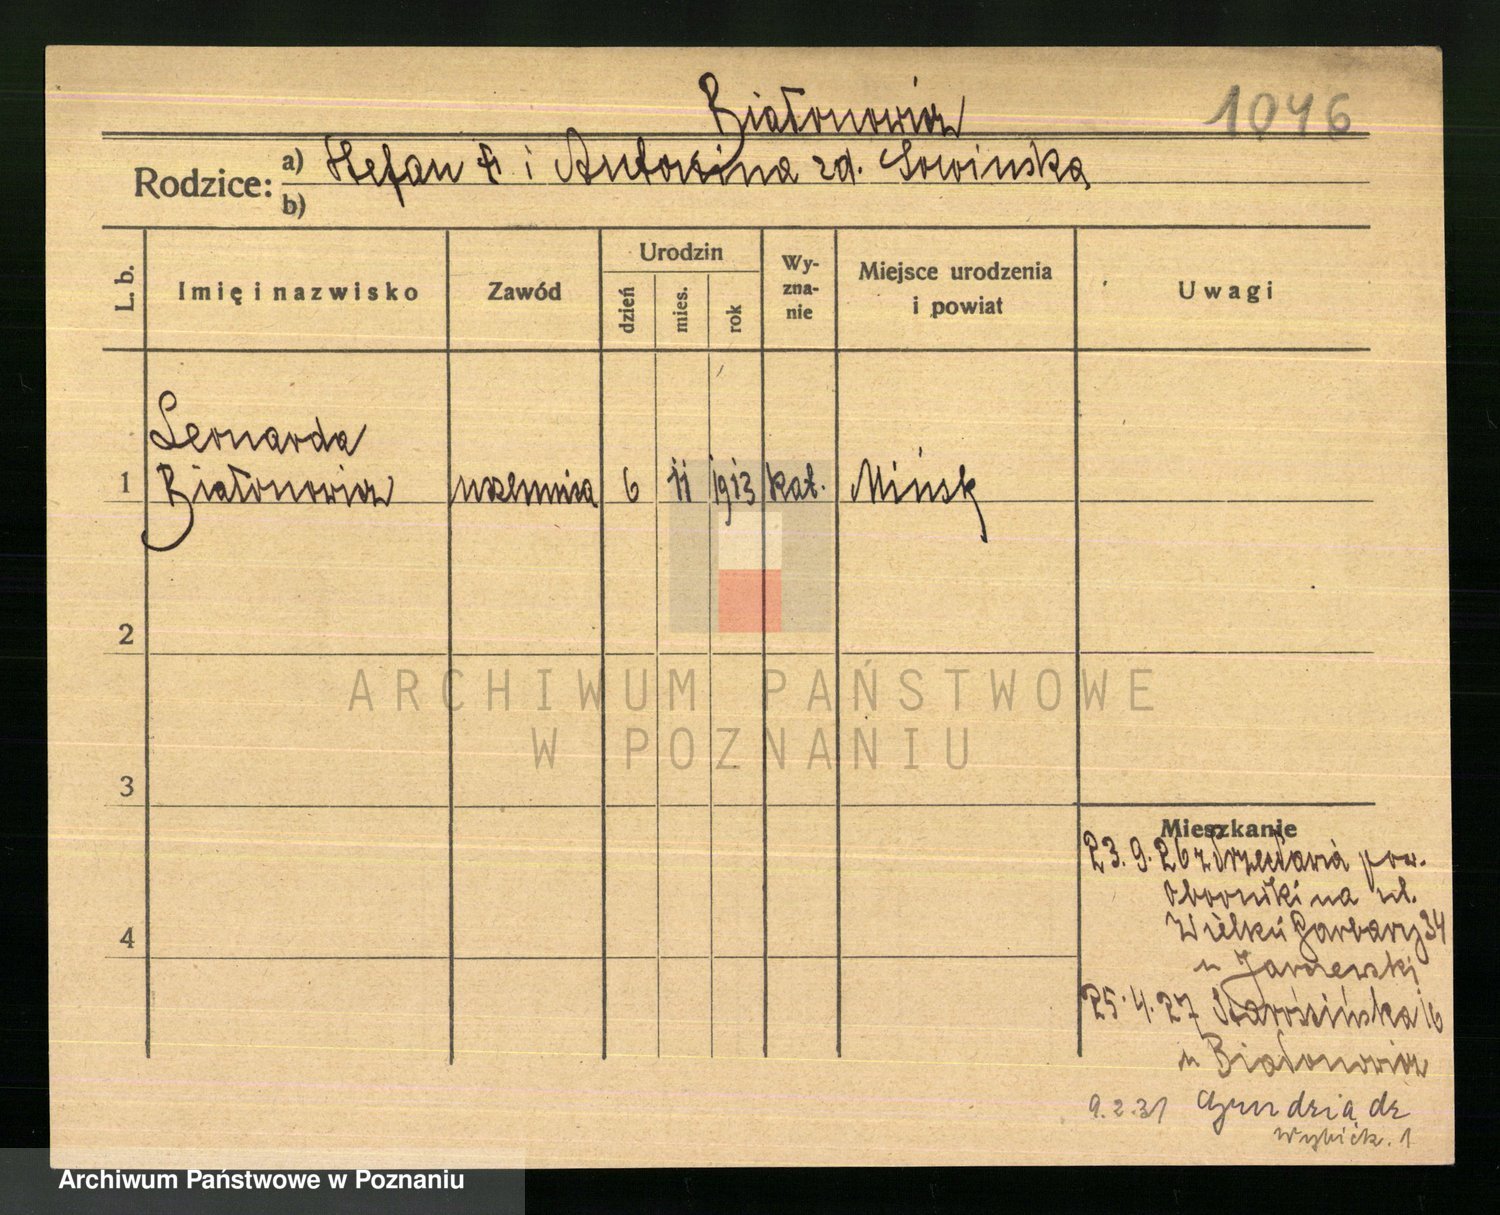 Białonowicz
1046
Rodzice: a) Stefan i Antonina zd. Sowińska
b)
L. b.
Imię i nazwisko
Zawód
Urodzin
dzień
mies.
rok
Wy-
zna-
nie
Miejsce urodzenia
i powiat
Uwagi
Leonarda
1 Białonowicz uczennica 6 11 1913 kat. Mińsk
2
3
4
Mieszkanie
23.9.26 z pow.
Oborniki na ul.
Wielkie Garbary 34
u Jarczewski
25.4.27 Starościńska 16
u Białonowicz
9.2.31 Grudziądz
Wybick. 1
ARCHIWUM PAŃSTWOWE
W POZNANIU
Archiwum Państwowe w Poznaniu